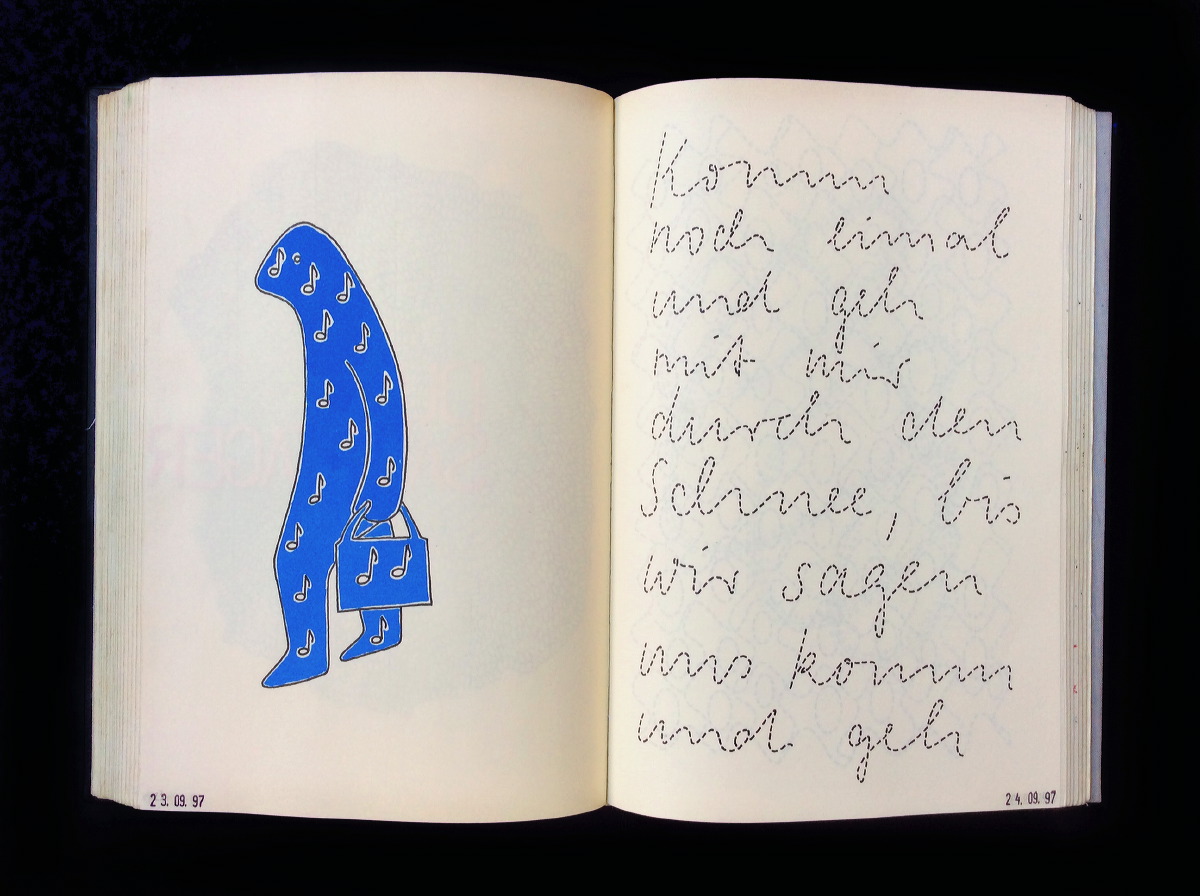 23.09.97
Komm
noch einmal
und geh
mit mir
durch den
Schnee, bis
wir sagen
uns komm
und geh
24.09.97